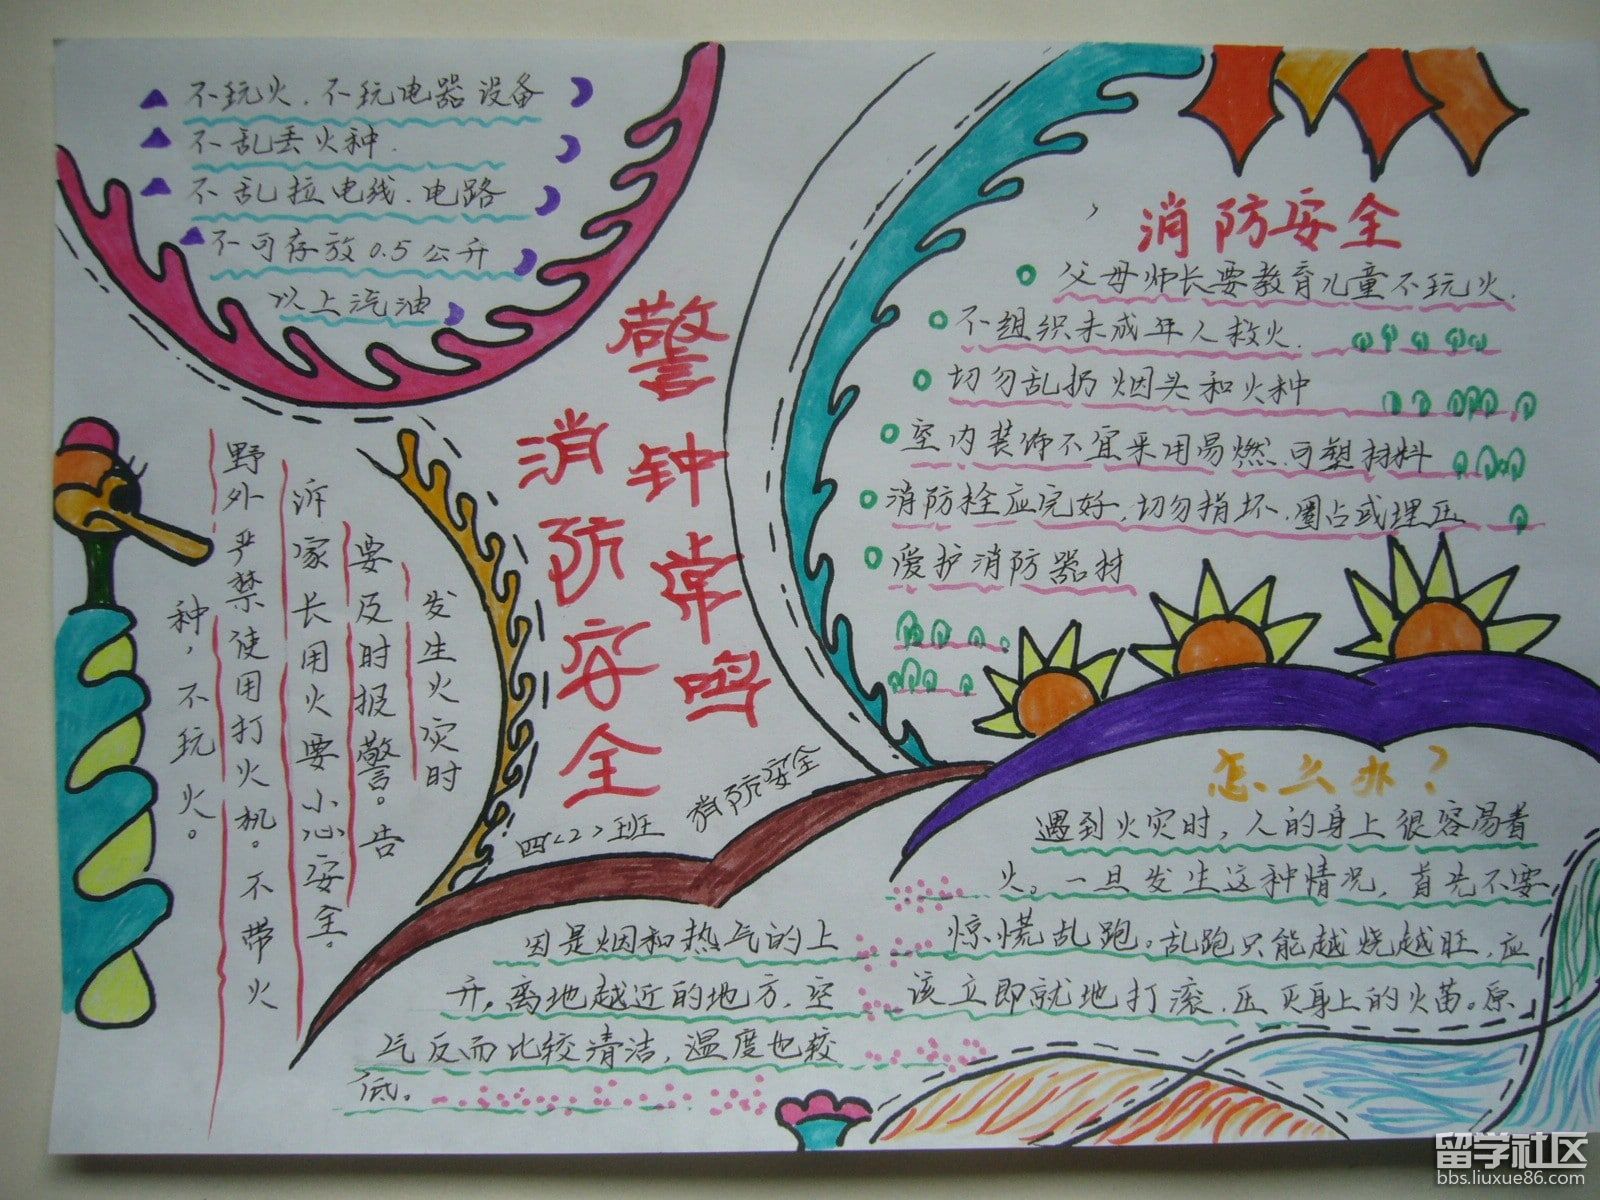 不玩火、不玩电器设备
不乱丢火种.
不乱拉电线、电路
不可存放0.5公升
以上汽油
警钟常鸣
消防安全
发生火灾时
要及时报警。告
诉家长用火要小心安全.
野外严禁使用打火机。不带火
种，不玩火。
四<2>班
消防安全
消防安全
父母师长要教育儿童不玩火.
不组织未成年人救火.
切勿乱扔烟头和火种
室内装饰不宜采用易燃、可塑材料
消防栓应完好,切勿损坏、圈占或埋压
爱护消防器材
怎么办？
遇到火灾时，人的身上很容易着
火。一旦发生这种情况，首先不要
惊慌乱跑。乱跑只能越烧越旺，应
该立即就地打滚、压灭身上的火苗。原
因是烟和热气的上
升，离地越近的地方、空
气反而比较清洁，温度也较
低。
留学社区
bbs.liuxue86.com